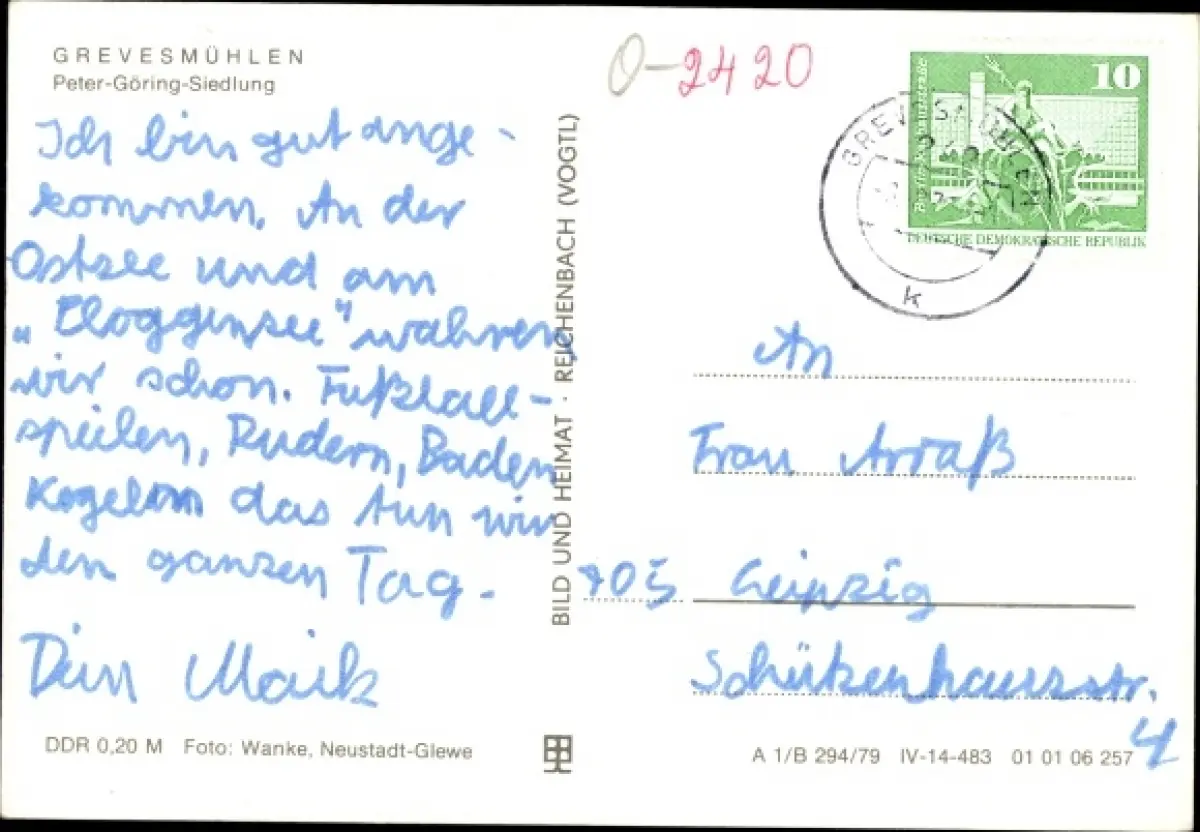 GREVESMÜHLEN
Peter-Göring-Siedlung
Ich bin gut ange-
kommen. An der
Ostsee und am
„Ploggensee" wahren
wir schon. Fußball-
spielen, Rudern, Baden
Kegeln das tun wir
den ganzen Tag.
Dein Maik
DDR 0,20 M Foto: Wanke, Neustadt-Glewe
BILD UND HEIMAT · REICHENBACH (VOGTL)
O-2420
10
DEUTSCHE DEMOKRATISCHE REPUBLIK
GREVESMÜHLEN
k
An
Frau Arraß
705 Leipzig
Schützenhausstr.
4
A 1/B 294/79 IV-14-483 01 01 06 257